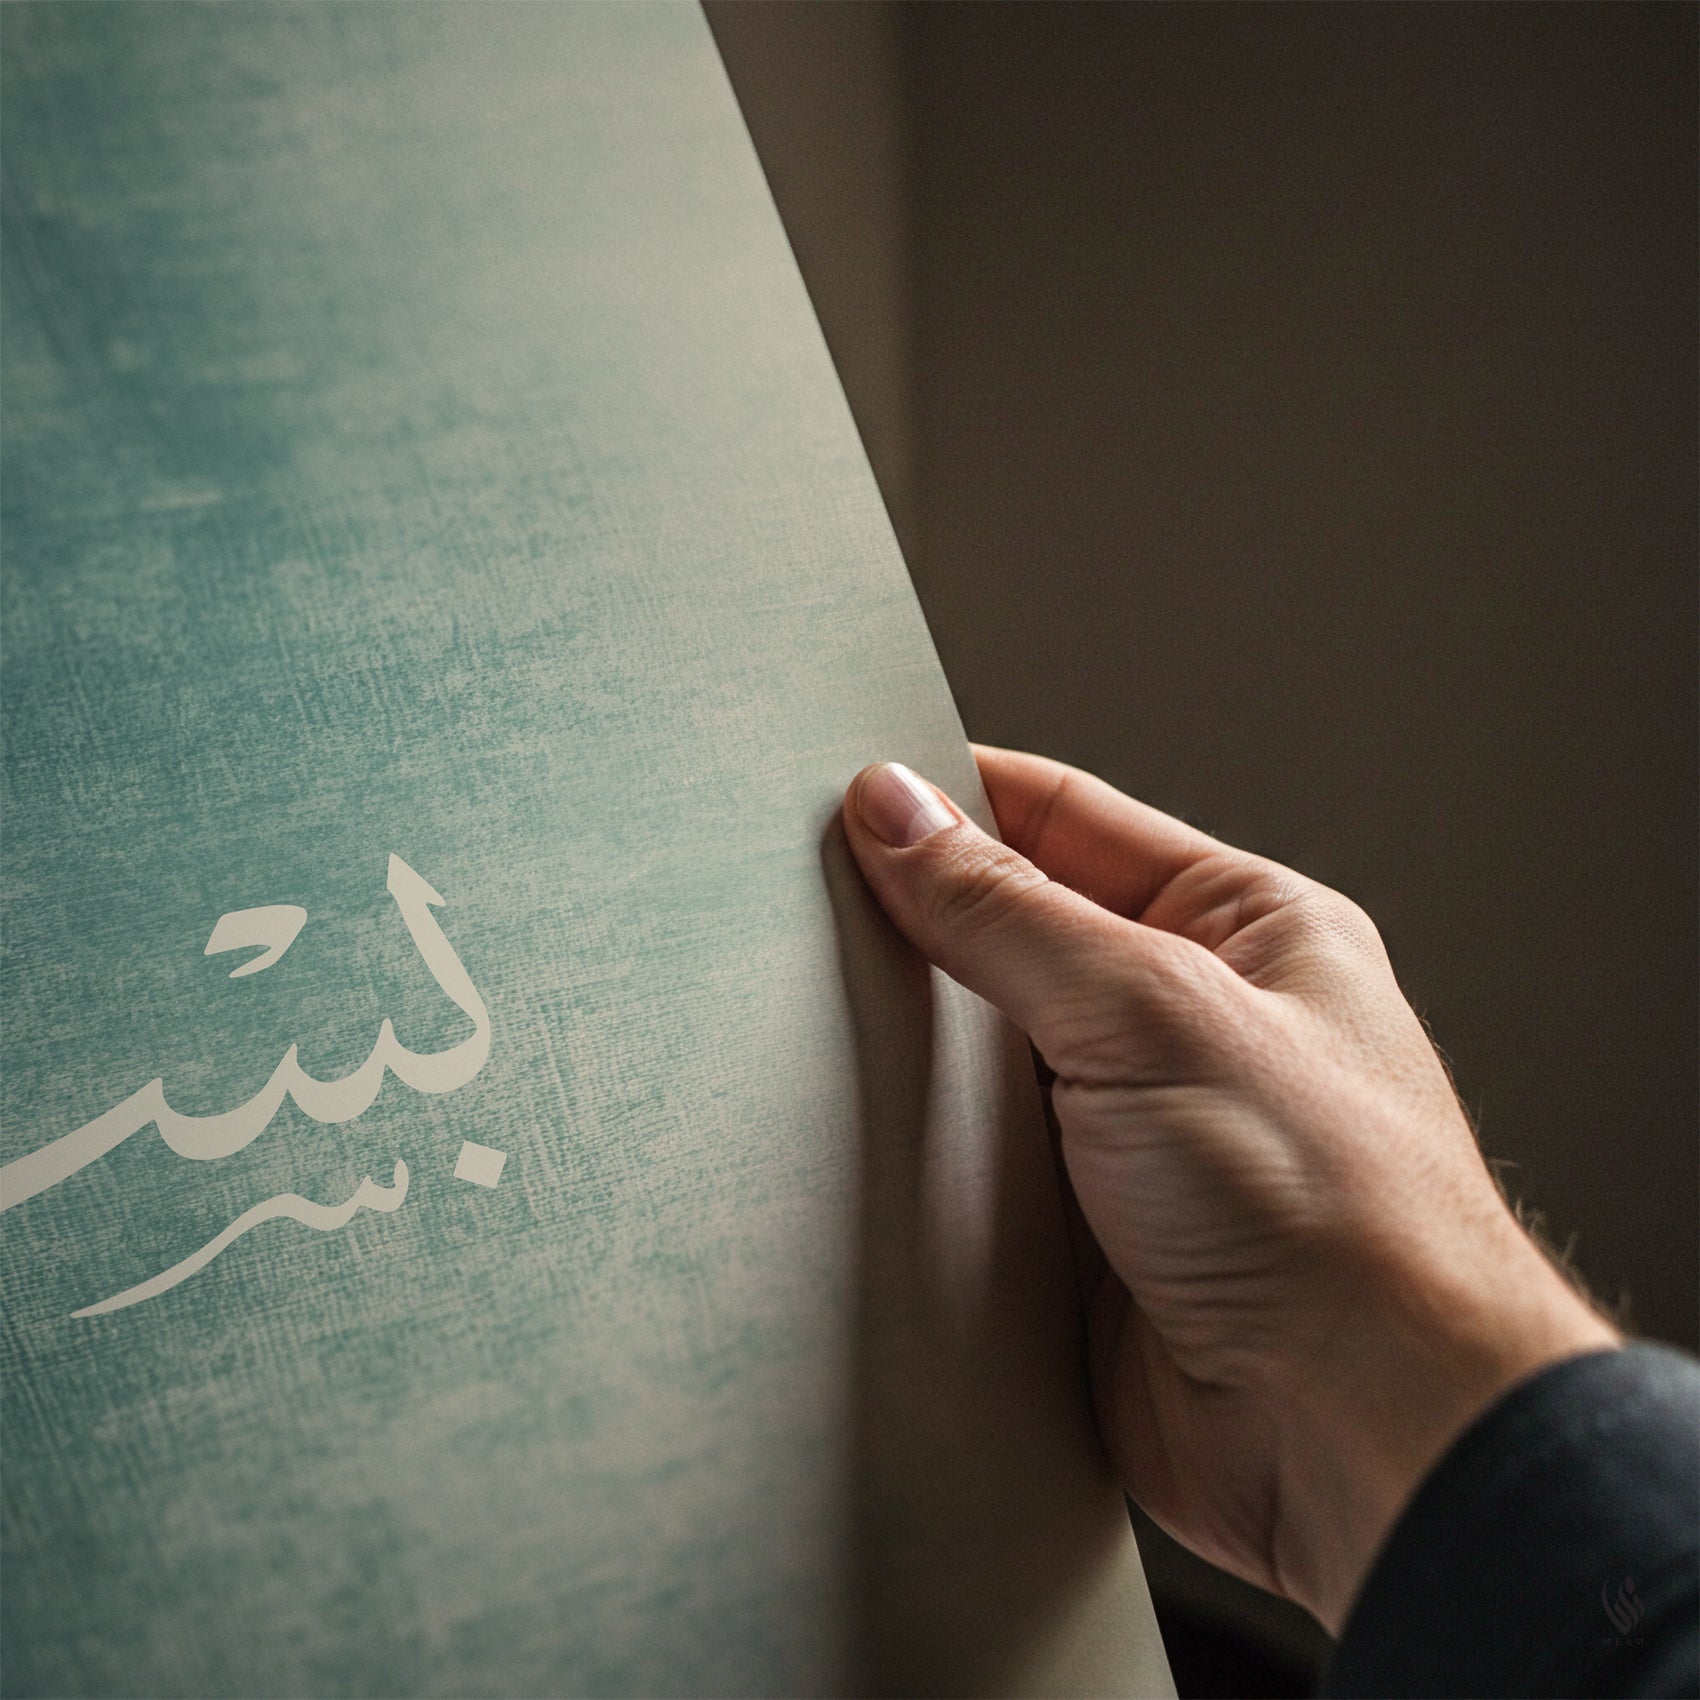 بسـ
MEAM